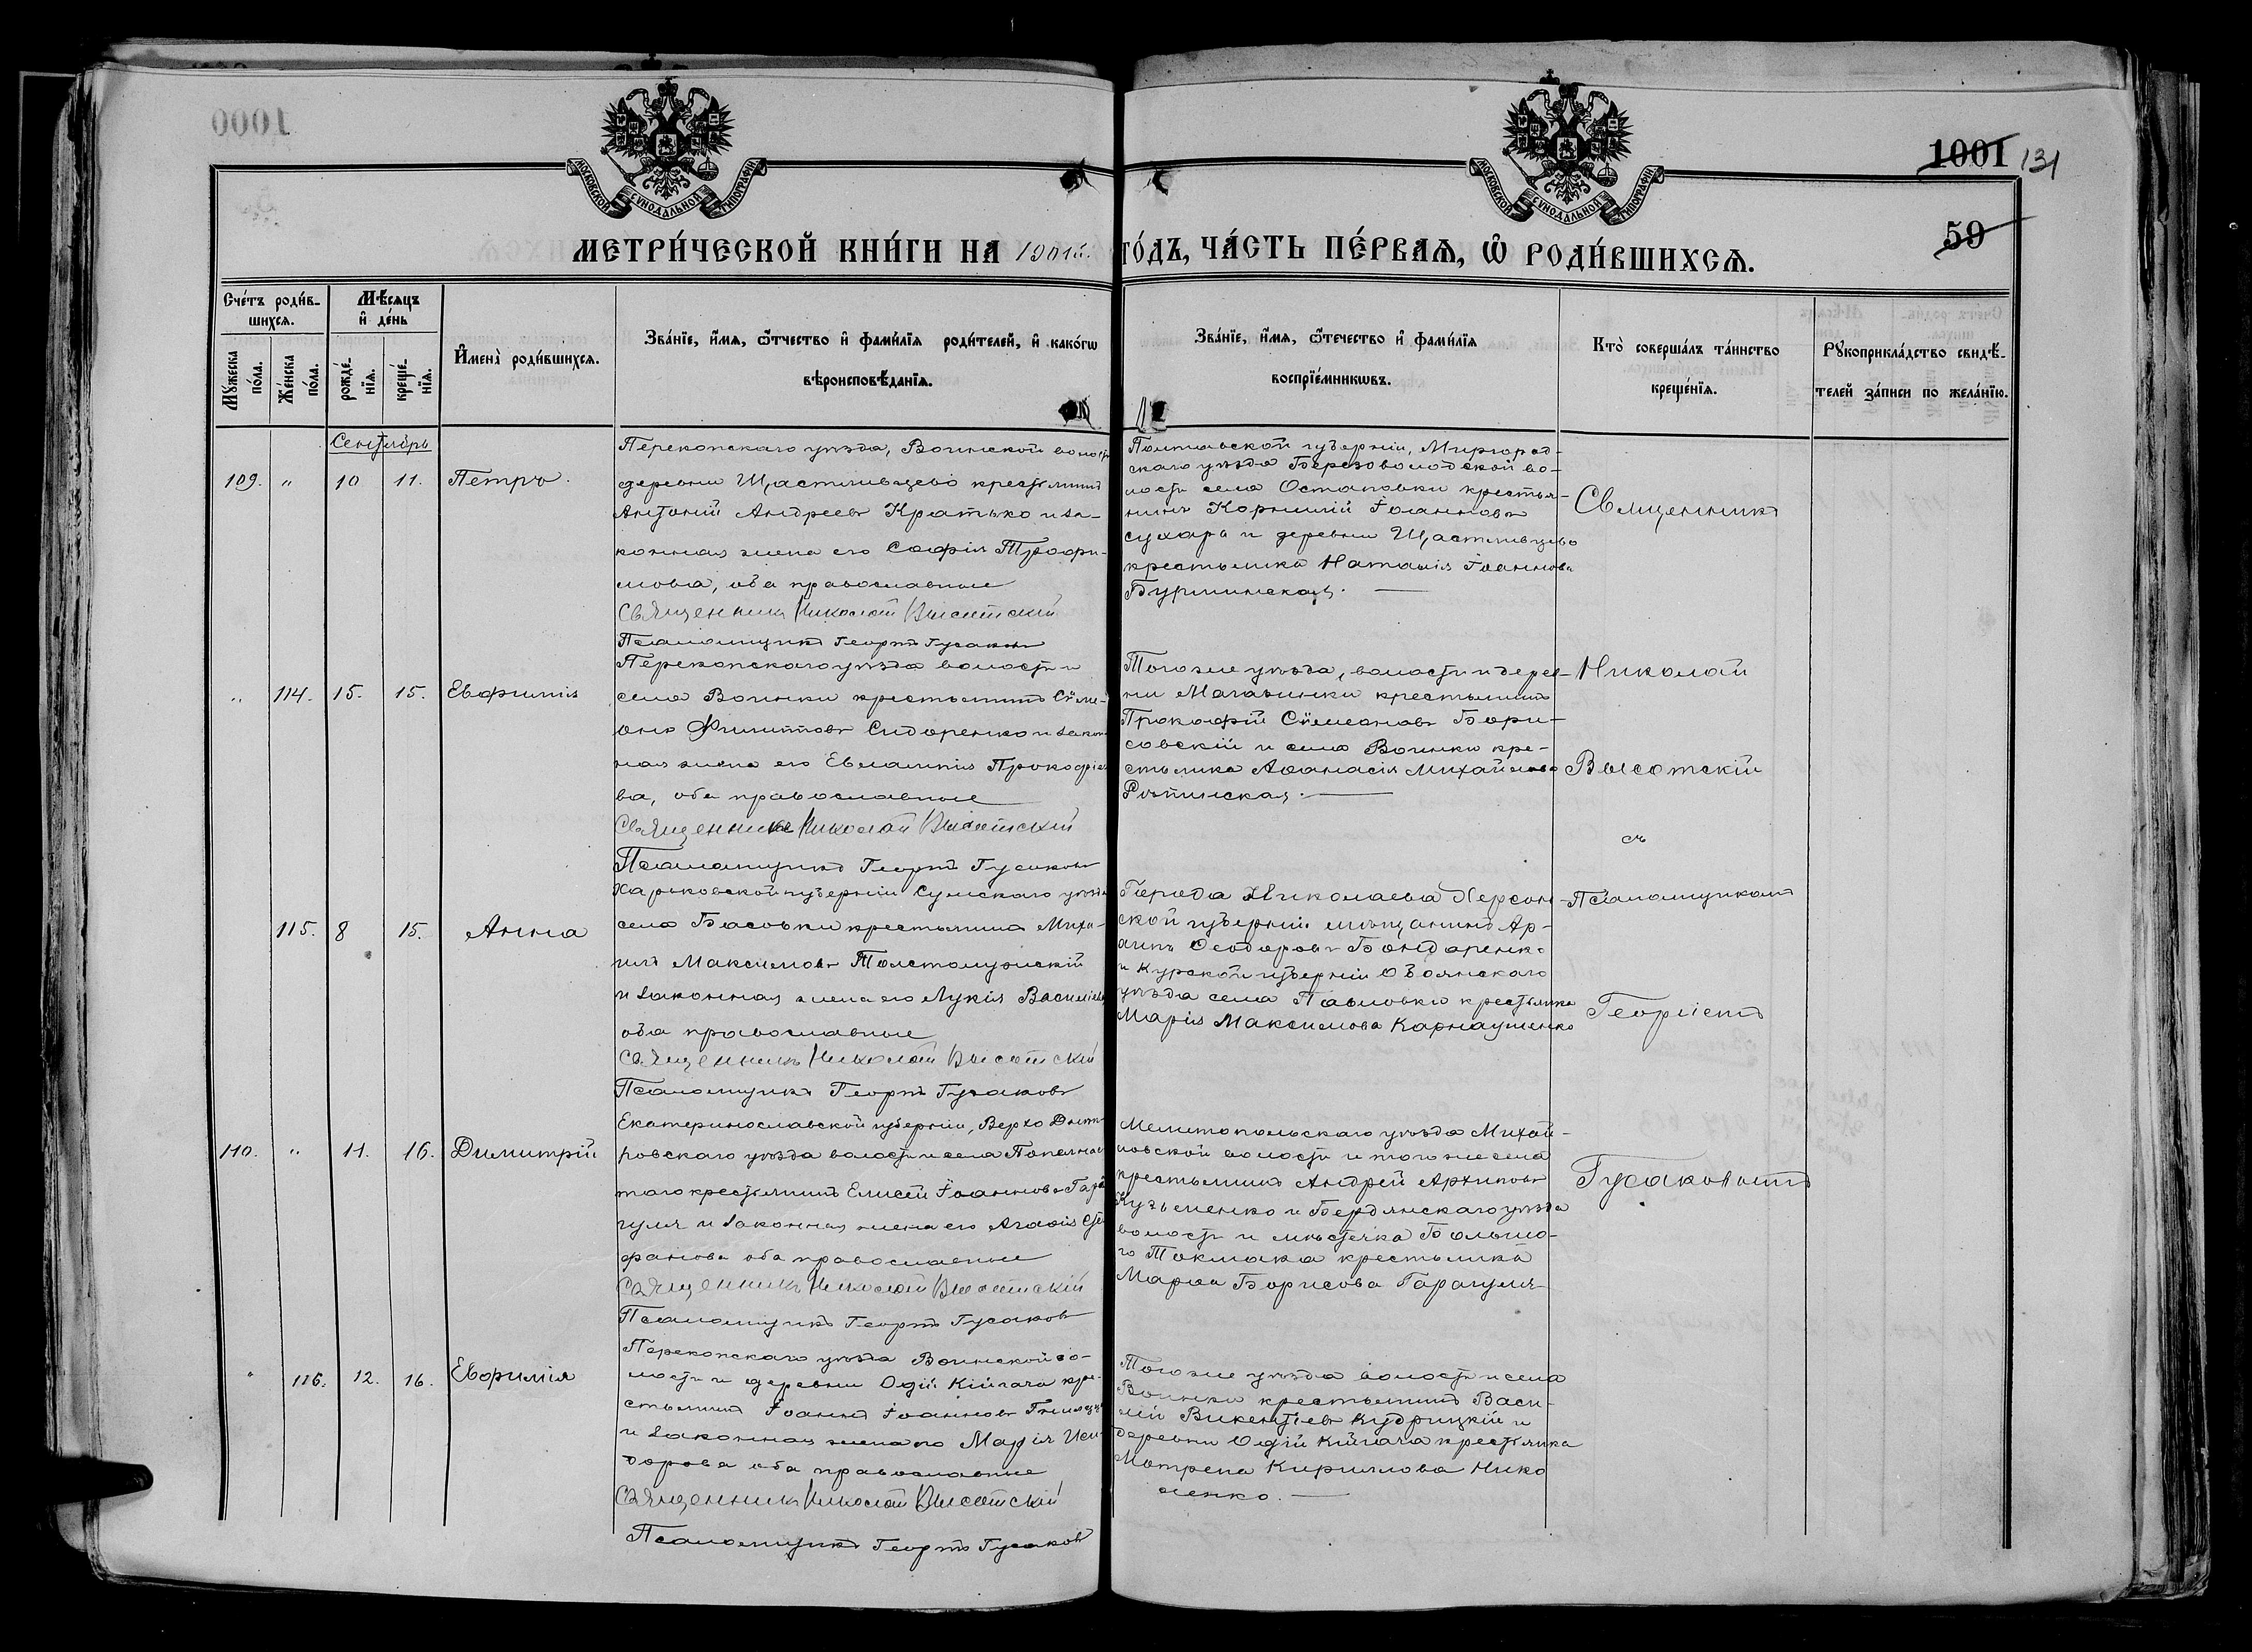 1000
1001 131
59
МОСКОВСКОЙ СУНОДАЛЬНОЙ ТИПОГРАФІИ
МОСКОВСКОЙ СУНОДАЛЬНОЙ ТИПОГРАФІИ
МЕТРИ́ЧЕСКОЙ КНИ́ГИ НА 1901й. ГО́ДЪ, ЧА́СТЬ ПЕ́РВАѦ, Ѽ РОДИ́ВШИХСѦ.
Сче́тъ роди́в-
шихсѧ.
Мѣ́сѧцъ
и҆ де́нь
Мꙋжеска по́ла.
Же́нска по́ла.
рожде́-
нїѧ.
креще́-
нїѧ.
И҆мена̀ роди́вшихсѧ.
Зва́нїе, и҆́мѧ, ѻ҆́тчество и҆ фами́лїѧ роди́телей, и҆ како́гѡ
вѣроисповѣ́данїѧ.
Зва́нїе, и҆́мѧ, ѻ҆́течество и҆ фами́лїѧ
воспрїе́мникѡвъ.
Кто̀ соверша́лъ та́инство
креще́нїѧ.
Рꙋкоприкла́дство свидѣ́-
телей за́писи по жела́нїю.
Сентябрь
109. „ 10 11. Петръ.
Перекопскаго уѣзда, Воинской волости
деревни Щастливцево крестьянинъ
Антоній Андреевъ Кратько и за-
конная жена его Софія Трофи-
мова, оба православные
Священникъ Николай Высотскій
Псаломщикъ Георгій Гусаковъ
Полтавской губерніи, Миргород-
скаго уѣзда Березоволодской во-
лости села Остаповки крестья-
нинъ Корнилій Іоанновъ
Сухарь и деревни Щастливцево
крестьянка Наталія Іоаннова
Бурлинская.
Священникъ
„ 114. 15. 15. Евфимія
Перекопскаго уѣзда волости и
села Воинки крестьянинъ Сѵме-
онъ Филипповъ Сидоренко и закон-
ная жена его Евлампія Прокофіе-
ва, оба православные
Священникъ Николай Высотскій
Псаломщикъ Георгій Гусаковъ
Того же уѣзда, волости и дерев-
ни Магазинки крестьянинъ
Прокофій Сѵмеоновъ Бори-
совскій и села Воинки кре-
стьянка Аѳанасія Михайлова
Рѣпинская.
Николай
Высотскій
съ
115. 8 15. Анна
Харьковской губерніи Сумскаго уѣзда
села Басовки крестьянинъ Миха-
илъ Максимовъ Толстолужскій
и законная жена его Лукія Васильева
оба православные
Священникъ Николай Высотскій
Псаломщикъ Георгій Гусаковъ
Города Николаева Херсон-
ской губерніи мѣщанинъ Ар-
хипъ Ѳеодоровъ Бондаренко
и Курской губерніи Обоянскаго
уѣзда села Павловки крестьянка
Марія Максимова Карнаушенко
Псаломщикомъ
Георгіемъ
110. „ 11. 16. Димитрій
Екатеринославской губерніи, Верхо Днѣп-
ровскаго уѣзда волости и села Попельнас-
таго крестьянинъ Елисей Іоанновъ Гара-
гуля и законная жена его Агаѳія Сте-
фанова оба православные
Священникъ Николай Высотскій
Псаломщикъ Георгій Гусаковъ
Мелитопольскаго уѣзда Михай-
ловской волости и того же села
крестьянинъ Андрей Архиповъ
Кузьменко и Бердянскаго уѣзда
волости и мѣстечка Большо-
го Токмака крестьянка
Марѳа Борисова Гарагуля
Гусаковымъ
„ 116. 12. 16. Евфимія
Перекопскаго уѣзда Воинской во-
лости и деревни Одій Кійгачъ кре-
стьянинъ Іоаннъ Іоанновъ
и законная жена его Марія Иси-
дорова оба православные
Священникъ Николай Высотскій
Псаломщикъ Георгій Гусаковъ
Того же уѣзда волости и села
Воинки крестьянинъ Васи-
лій Викентіевъ Кудрицкій и
деревни Одій Кійгачъ крестьянка
Матрена Кириллова Нико
ленко.